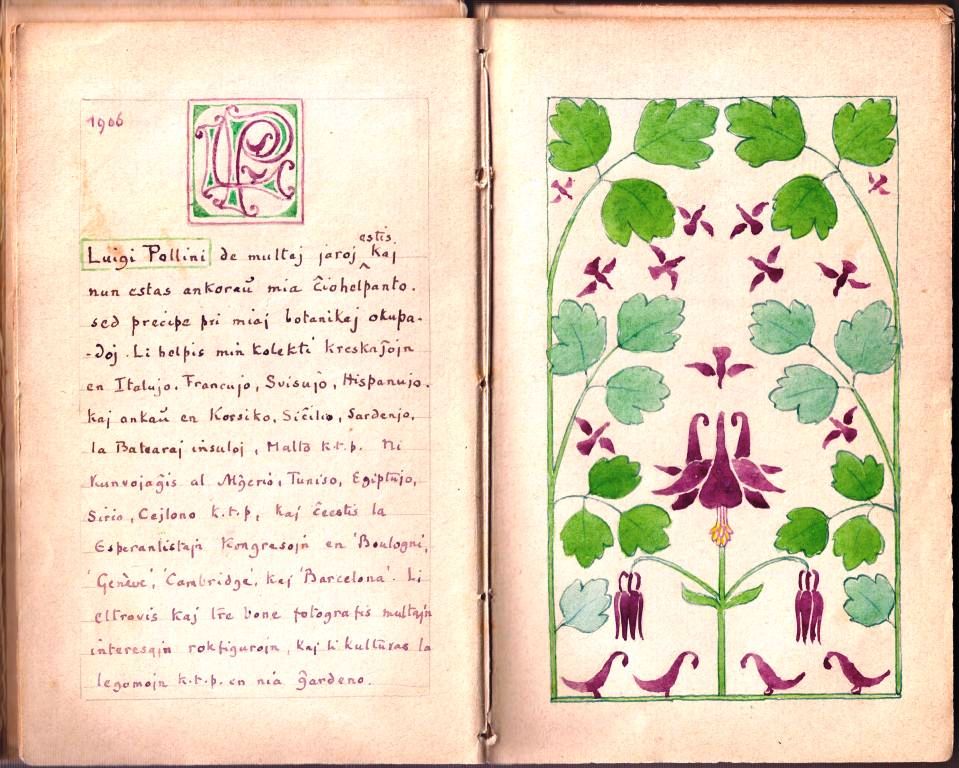 1906
LP
estis
Luigi Pollini de multaj jaroj kaj
nun estas ankoraŭ mia ĉiohelpanto.
sed precipe pri miaj botanikaj okupa-
-doj. Li helpis min kolekti kreskaĵojn
en Italujo, Francujo, Svisujo, Hispanujo.
kaj ankaŭ en Korsiko, Siĉilio, Sardenjo,
la Balearaj insuloj, Malto k.t.p. Ni
kunvojaĝis al Alĝerio, Tuniso, Egiptujo,
Sirio, Cejlono k.t.p, kaj ĉeestis la
Esperantistajn Kongresojn en 'Boulogni,
'Genève', 'Cambridge', kaj 'Barcelona'. Li
eltrovis kaj tre bone fotografis multajn
interesajn rokfigurojn, kaj li kulturas la
legomojn k.t.p. en nia ĝardeno.